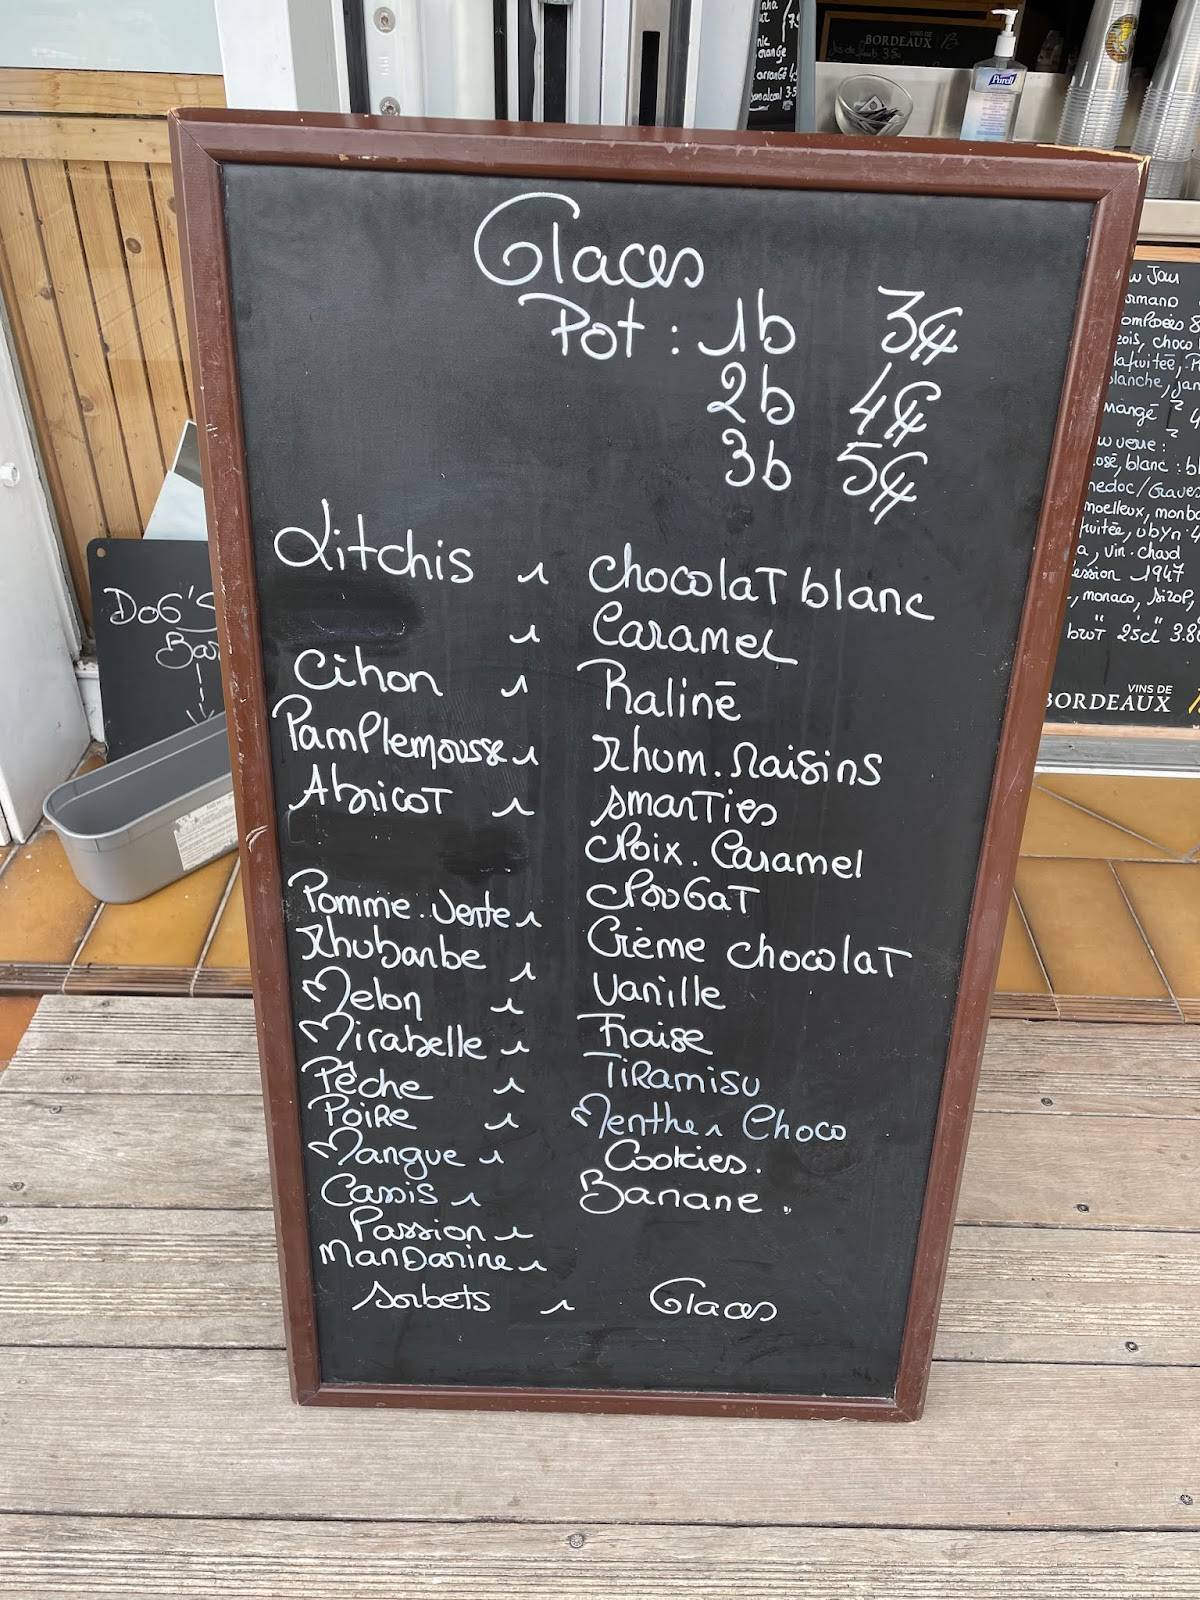 Glaces
Pot : 1b 3€
2b 4€
3b 5€
Litchis Chocolat blanc
Caramel
Citron Praliné
Pamplemousse Rhum. Raisins
Abricot Smarties
Noix. Caramel
Nougat
Pomme. Verte
Crème chocolat
Rhubarbe
Vanille
Melon
Fraise
Mirabelle
Tiramisu
Pêche
Menthe Choco
Poire
Cookies.
Mangue
Banane.
Cassis
Passion
Mandarine
Sorbets Glaces
DOG'S
Bar
VINS DE
BORDEAUX
Purell
VINS DE
BORDEAUX